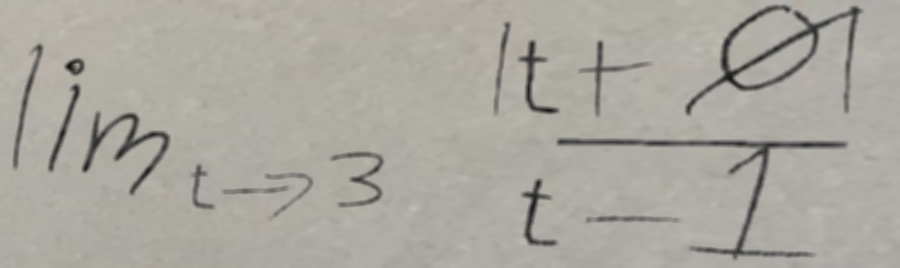 lim t→3 |t+0|/(t-1)